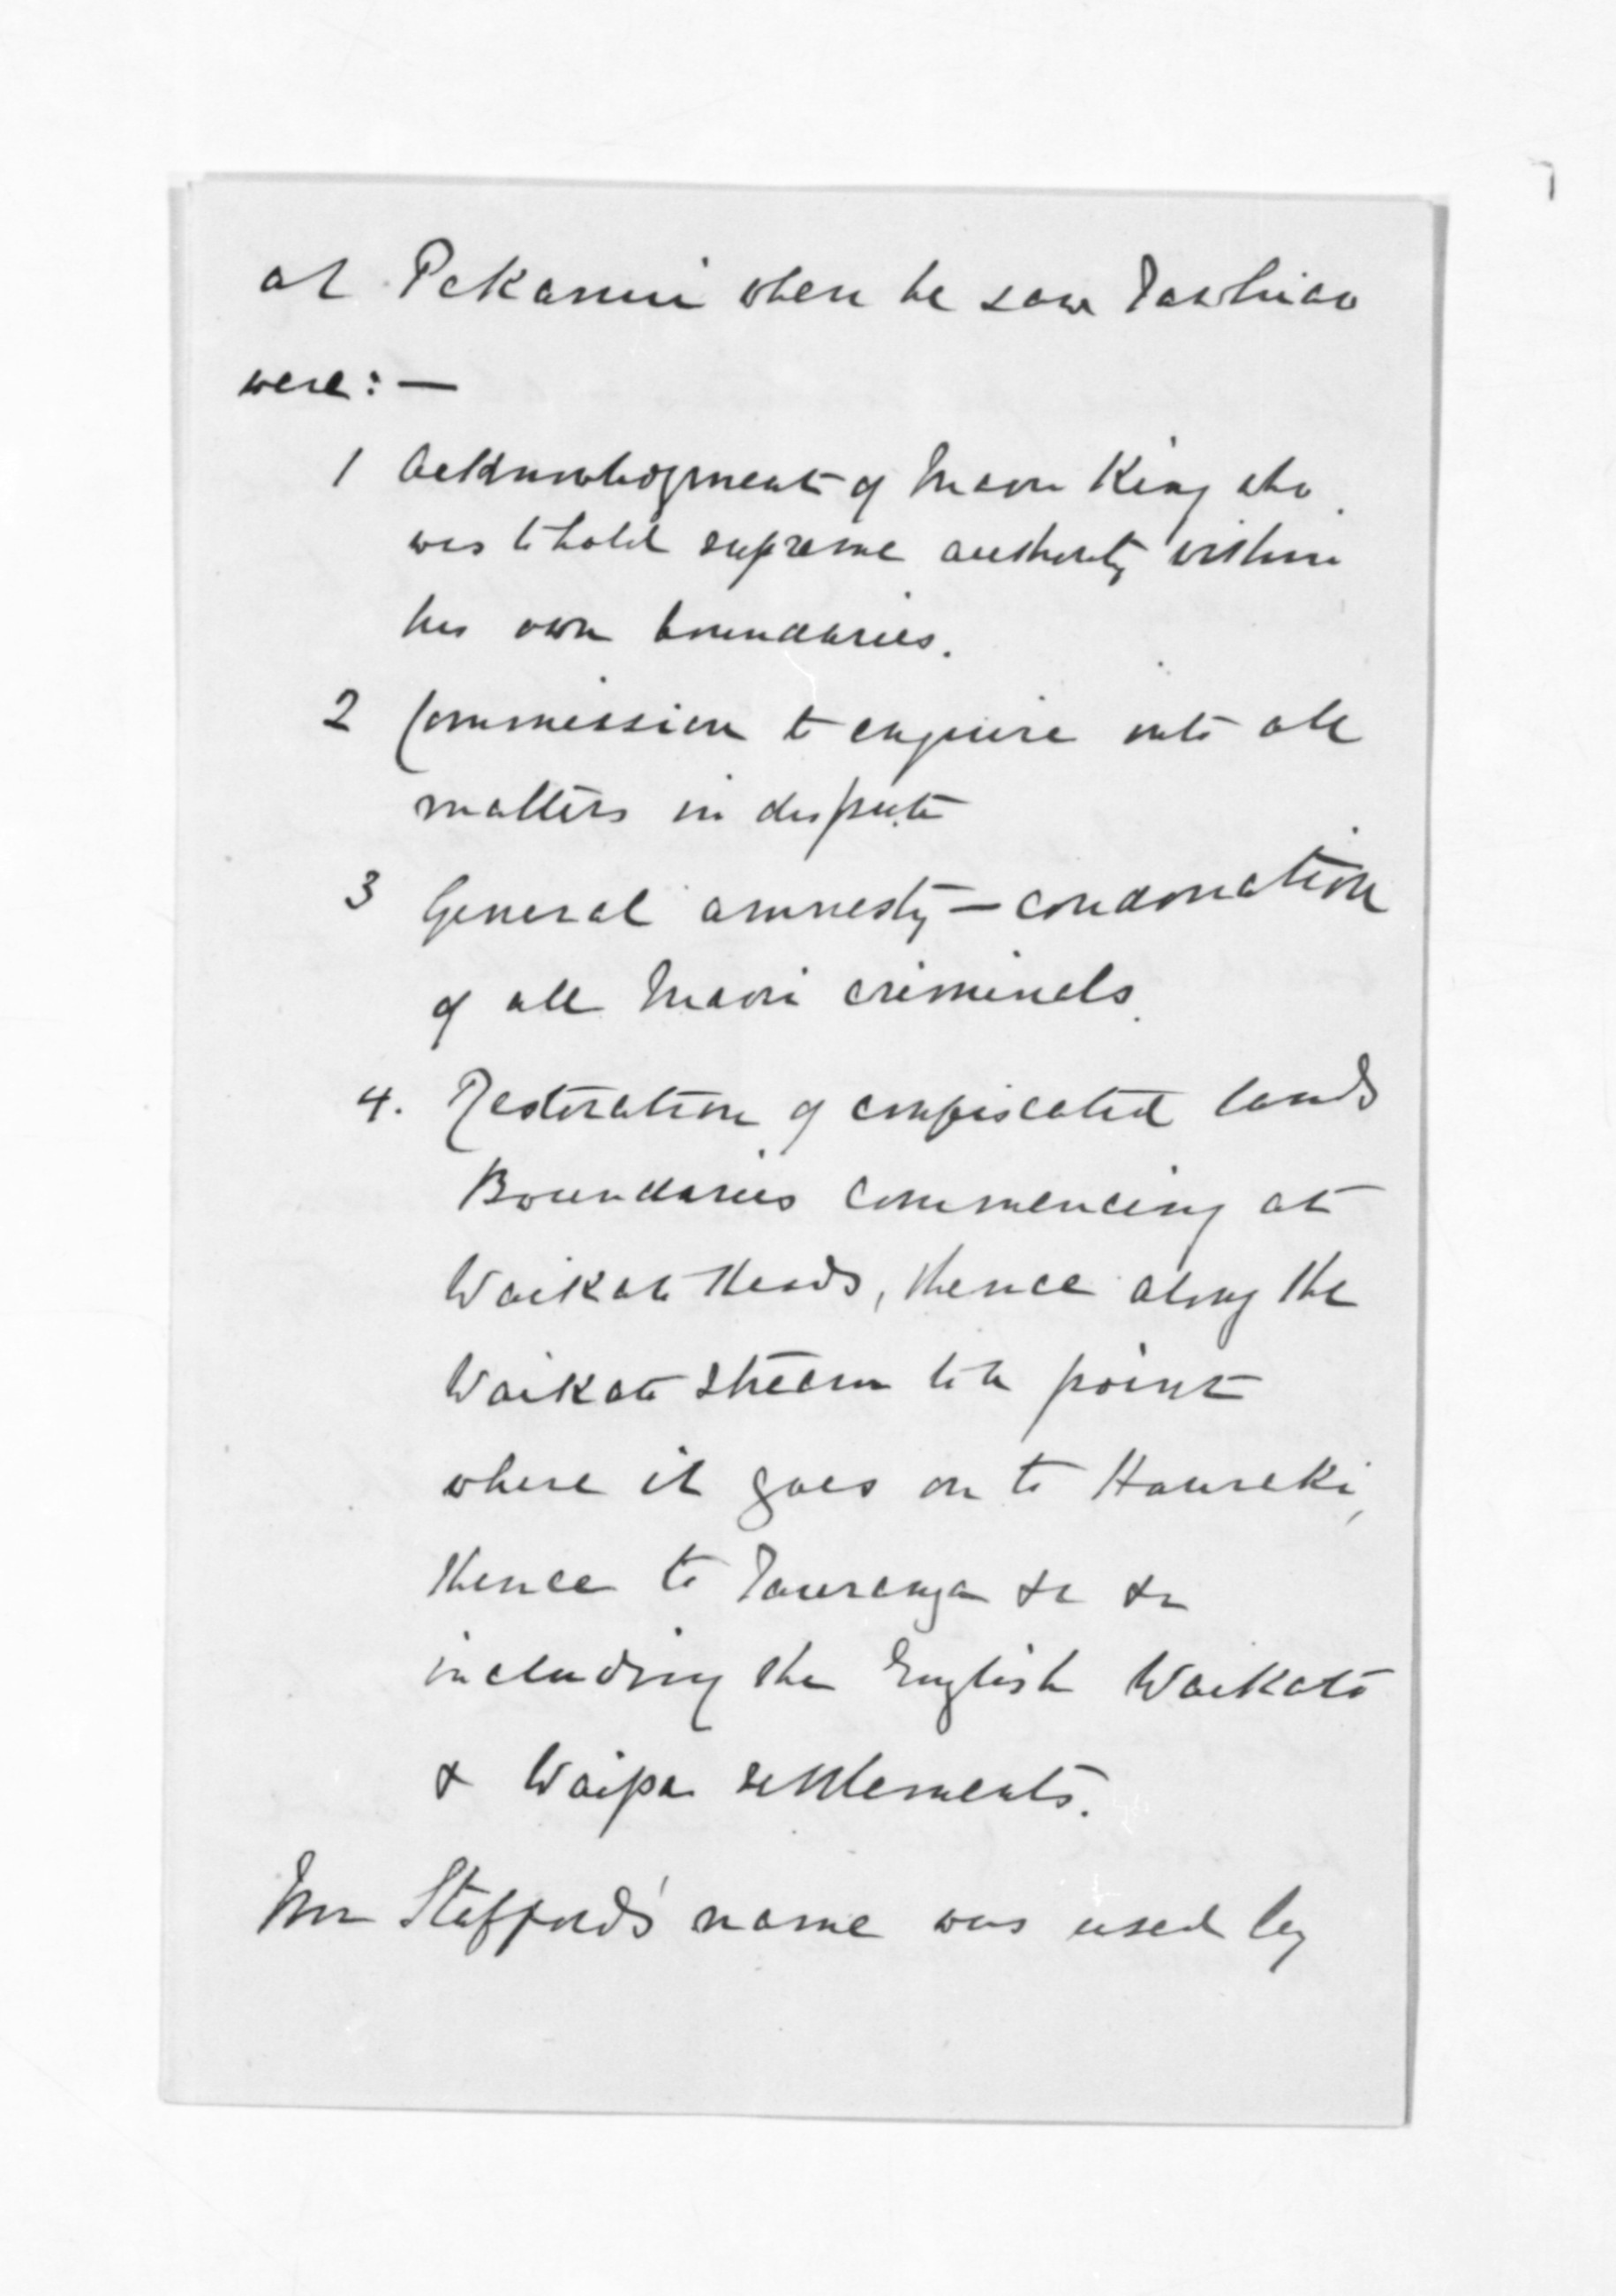 at Pekanui when he saw Tawhiao
were: —
1 Acknowledgment of Maori King who
was to hold supreme authority within
his own boundaries.
2 Commission to enquire into all
matters in dispute
3 General amnesty — condonation
of all Maori criminals.
4. Restoration of confiscated lands
Boundaries commencing at
Waikato Heads, thence along the
Waikato stream to a point
where it goes on to Hauraki,
thence to Tauranga &c &c
including the English Waikato
& Waipa settlements.
Mr Stafford's name was used by